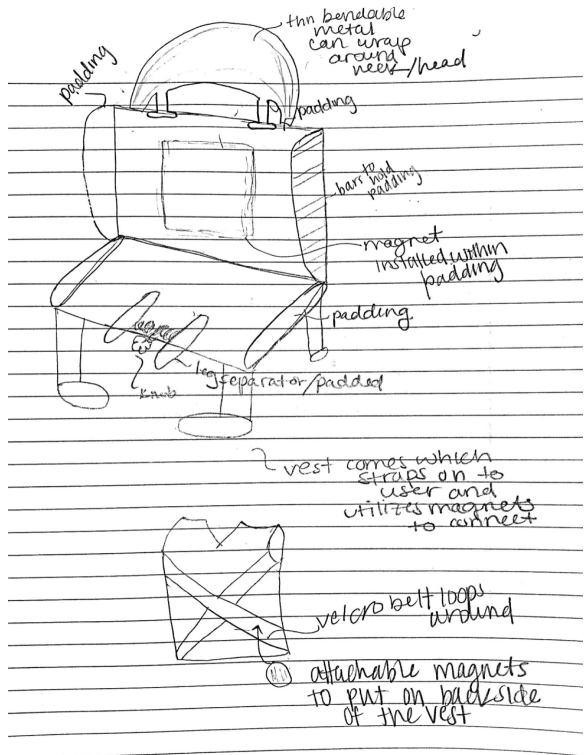 thn bendable
metal
can wrap
around
neck/head
padding
padding
bars to
hold
padding
magnet
installed within
padding
padding
leg separator/padded
knob
vest comes which
straps on to
user and
utilizes magnets
to connect
velcro belt loops
around
attachable magnets
to put on backside
of the vest